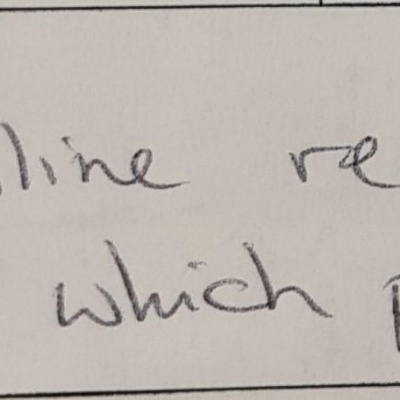 line re
which p